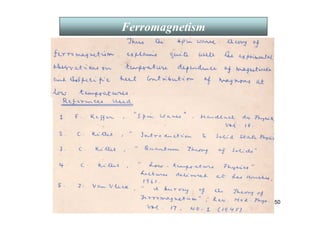 Ferromagnetism
Thus the spin wave theory of
ferromagnetism, explains quite well the experimental
observations on temperature dependence of magnetisation
and specific heat contribution of magnons at
low temperatures.
References Used
1. F. Keffer, "Spin Waves", Handbuch der Physik
Vol. 18.
2. C. Kittel, "Introduction to Solid State Physics"
3. C. Kittel, "Quantum Theory of Solids"
4. C. Kittel, "Low temperature Physics"
Lectures delivered at Les Houches,
1961.
5. J. Van Vleck, "A Survey of the Theory of
Ferromagnetism"; Rev. Mod. Phys.
Vol. 17, No. 1 (1945).
50